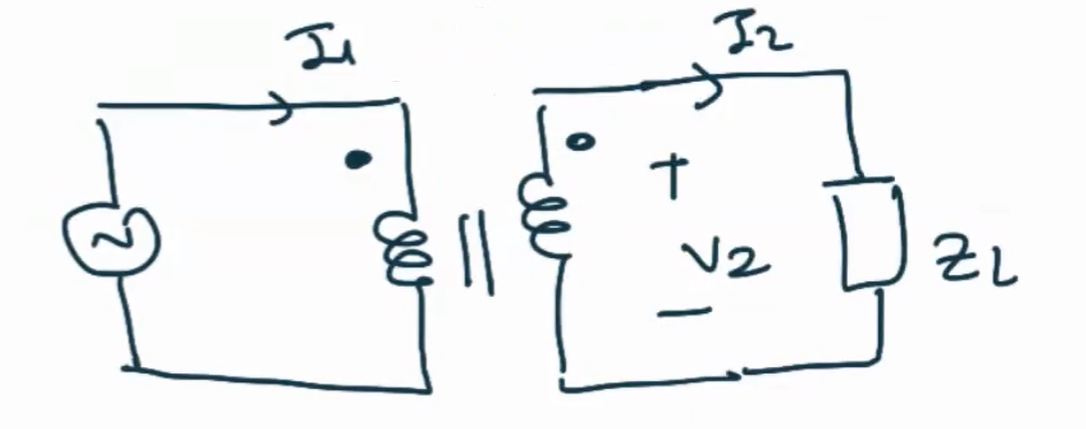 I1
I2
+
V2
-
ZL